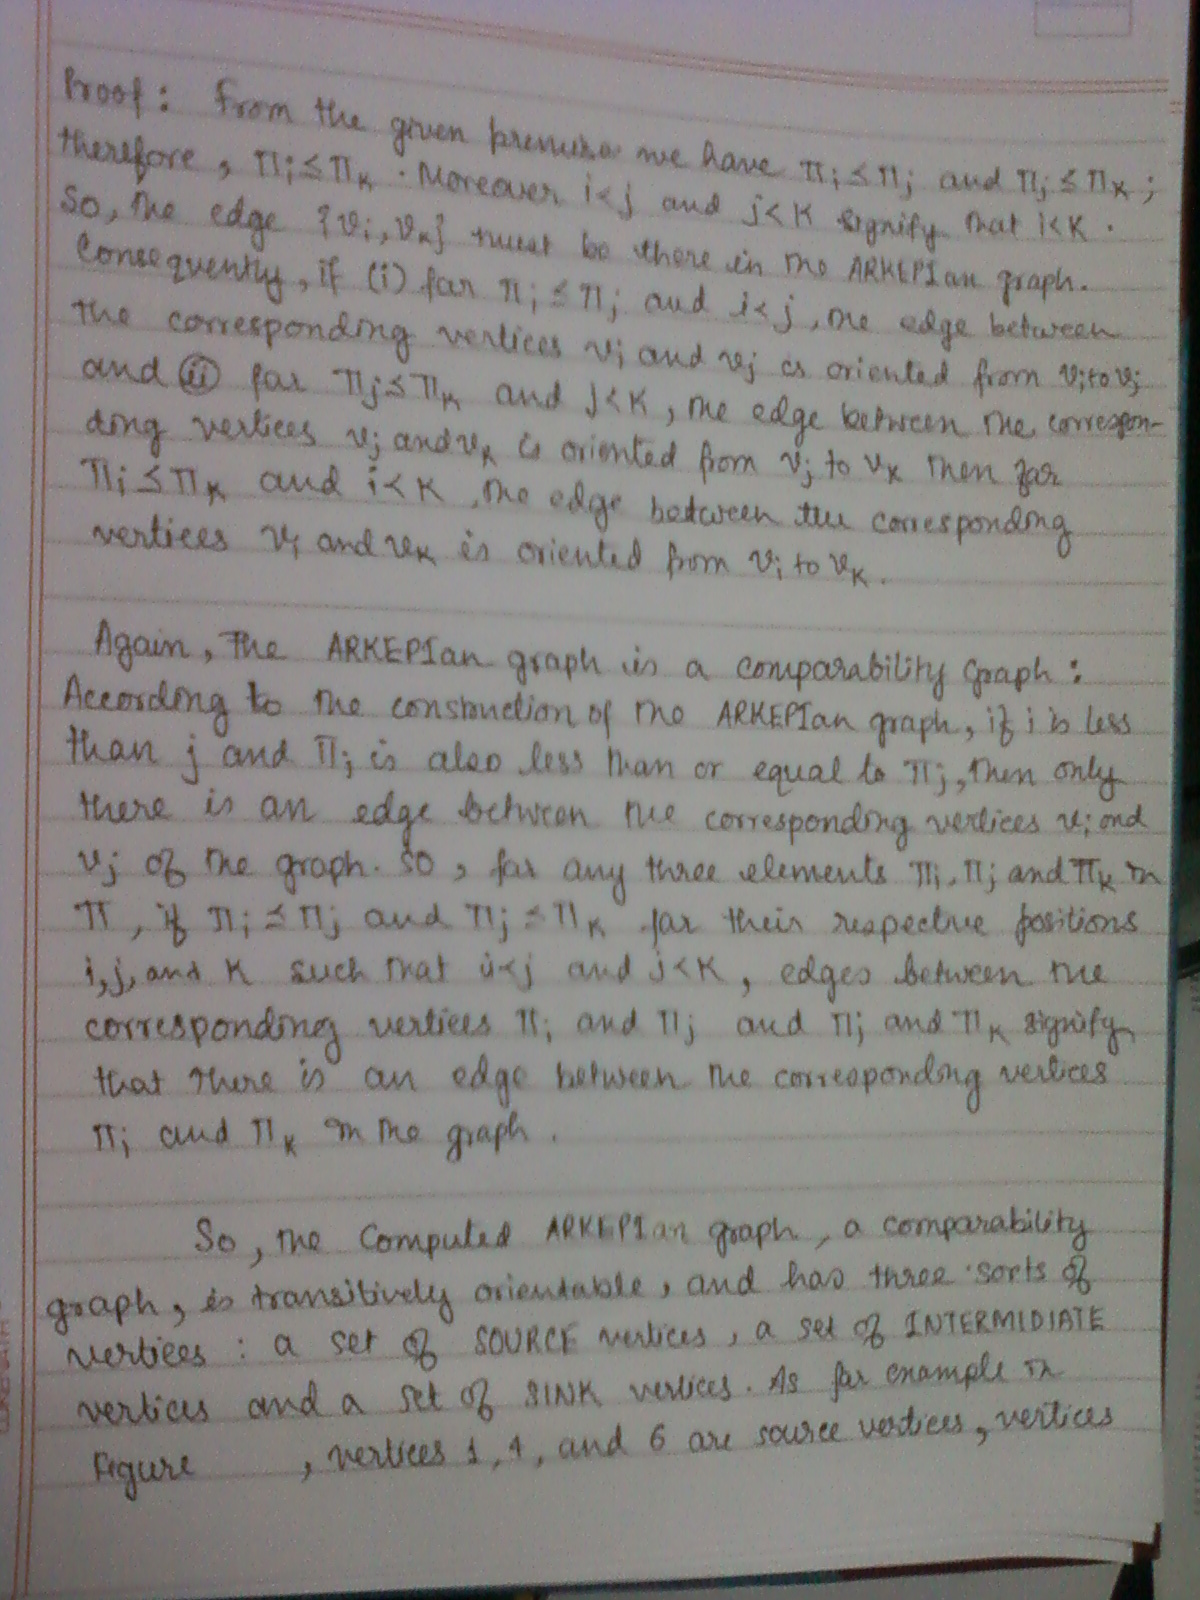 Proof: From the given premise we have Πi ≤ Πj and Πj ≤ Πk ;
therefore, Πi ≤ Πk . Moreover i<j and j<k signify that i<k .
So, the edge {vi, vk} must be there in the ARKEPIan graph.
Consequently, if (i) for Πi ≤ Πj and i<j, the edge between
the corresponding vertices vi and vj is oriented from vi to vj
and (ii) for Πj ≤ Πk and j<k, the edge between the correspon-
ding vertices vj and vk is oriented from vj to vk then for
Πi ≤ Πk and i<k, the edge between the corresponding
vertices vi and vk is oriented from vi to vk.
Again, The ARKEPIan graph is a comparability Graph:
According to the construction of the ARKEPIan graph, if i is less
than j and Πi is also less than or equal to Πj, then only
there is an edge between the corresponding vertices vi and
vj of the graph. So, for any three elements Πi, Πj and Πk in
Π, if Πi ≤ Πj and Πj ≤ Πk for their respective positions
i, j, and k such that i<j and j<k, edges between the
corresponding vertices Πi and Πj and Πj and Πk signify
that there is an edge between the corresponding vertices
Πi and Πk in the graph.
So, the Computed ARKEPIan graph, a comparability
graph, is transitively orientable, and has three sorts of
vertices : a set of SOURCE vertices, a set of INTERMIDIATE
vertices and a set of SINK vertices. As for example in
Figure , vertices 1, 4, and 6 are source vertices, vertices